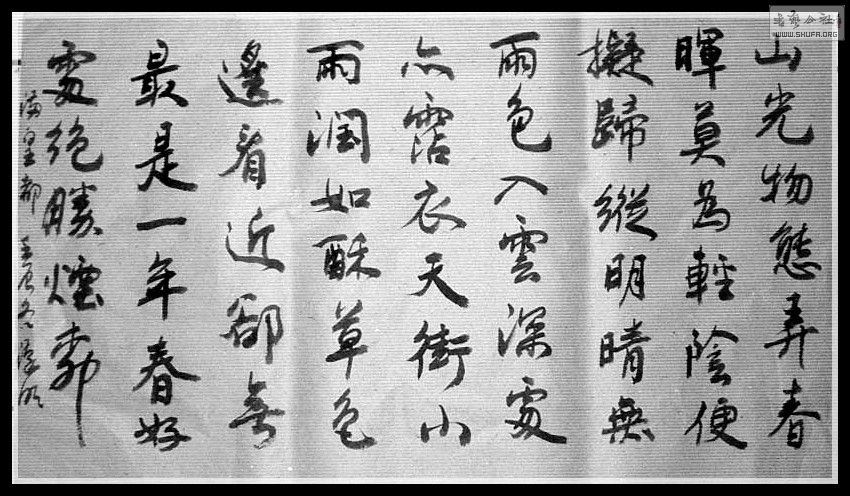 山光物態弄春
暉莫為輕陰便
擬歸縱明晴無
雨色入雲深處
亦霑衣天街小
雨潤如酥草色
邊看近卻無
最是一年春好
處絕勝煙柳
滿皇都
书艺公社
WWW.SHUFA.ORG